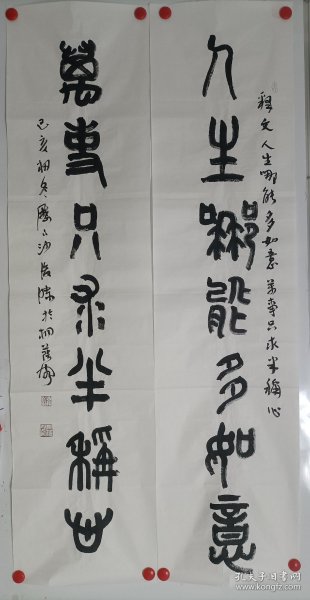 释文 人生哪能多如意 万事只求半称心
人生哪能多如意
萬事只求半稱心
己亥初冬
孔夫子旧书网
www.kongfz.com